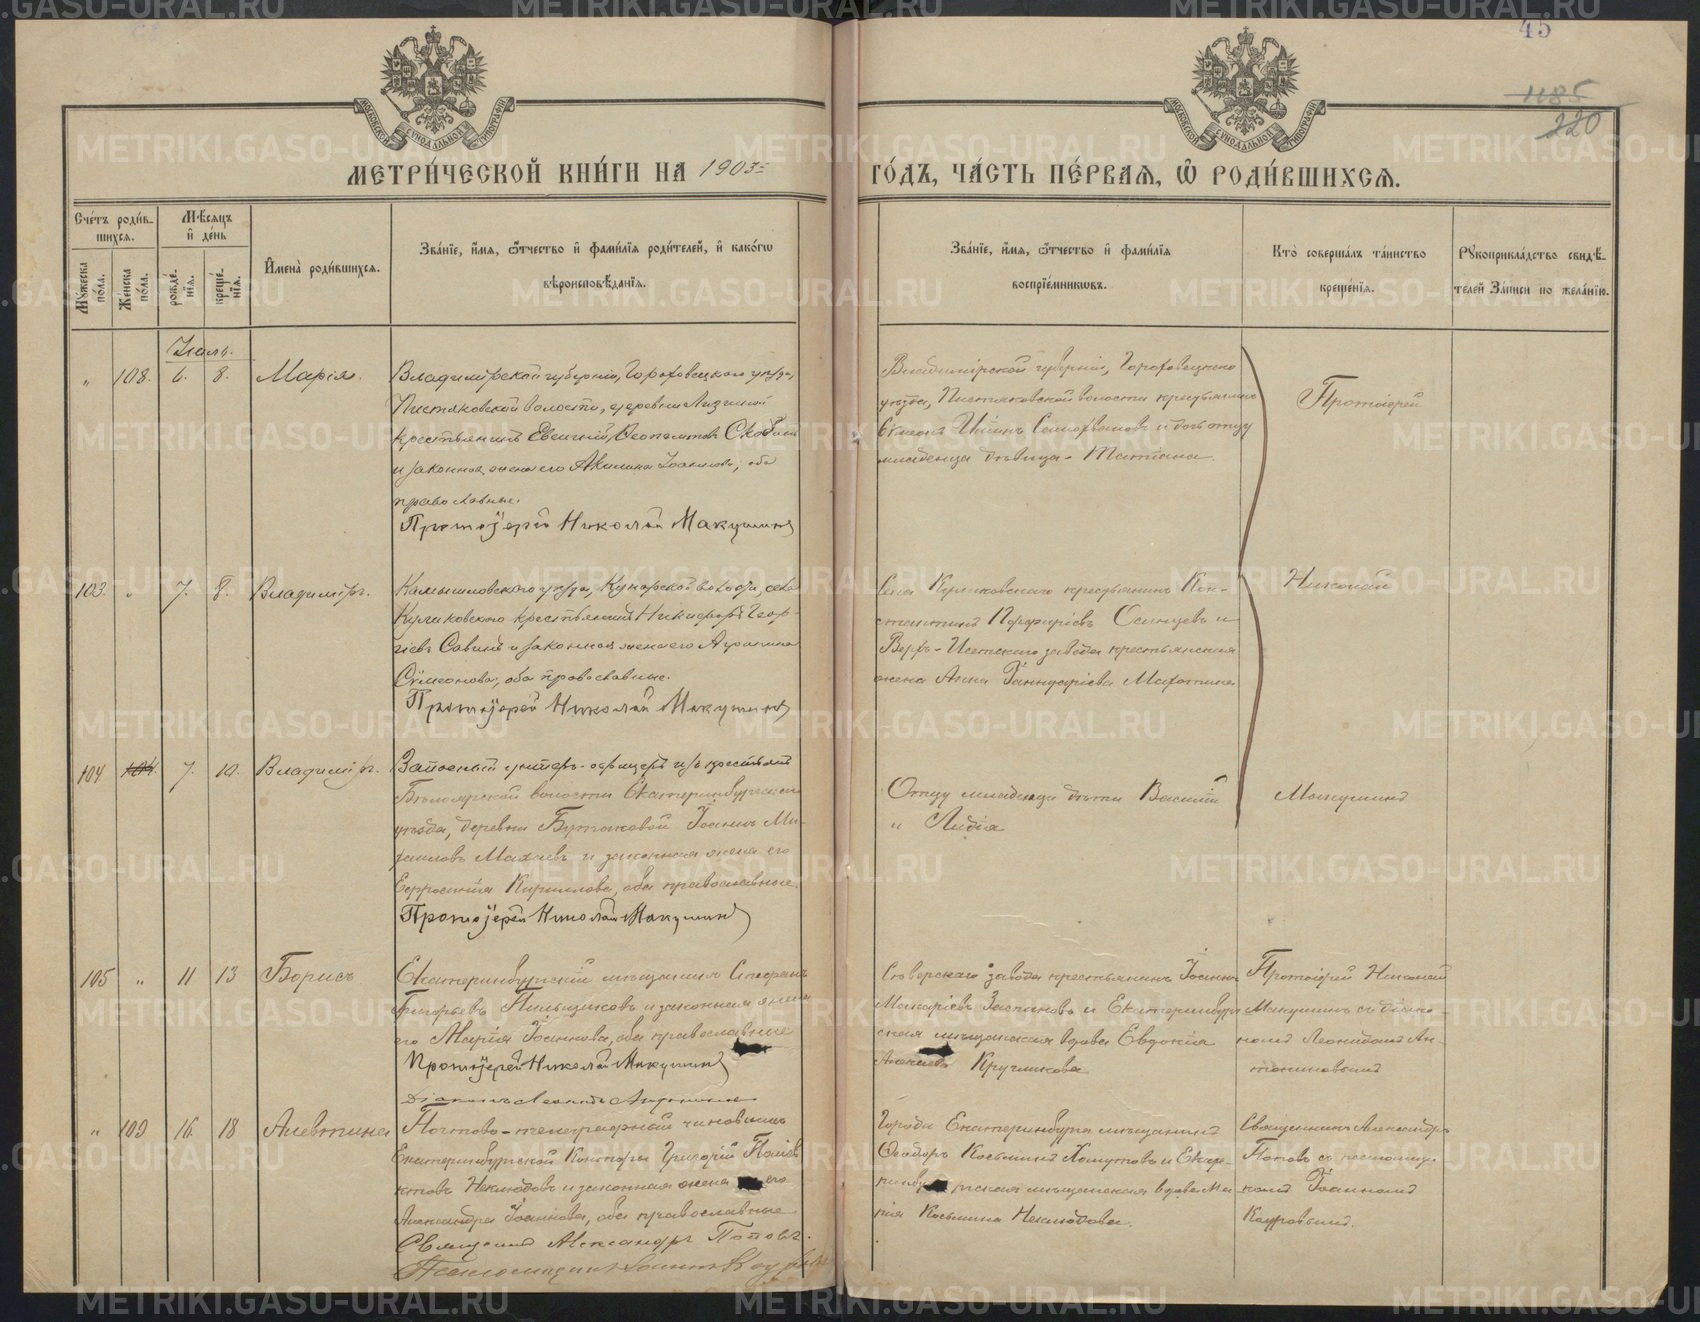 45
1185
220
МОСКОВСКОЙ СѴНОДАЛЬНОЙ ТИПОГРАФІИ
МОСКОВСКОЙ СѴНОДАЛЬНОЙ ТИПОГРАФІИ
МЕТРИ́ЧЕСКОЙ КНИ́ГИ НА 1903 ГО́ДЪ, ЧА́СТЬ ПЕ́РВАѦ, Ѡ҆ РОДИ́ВШИХСѦ.
Сче́тъ роди́в-
шихсѧ.
Мꙋ́жеска по́ла.
Же́нска по́ла.
Мѣ́сѧцъ
и҆ де́нь
рожде́нїѧ.
креще́нїѧ.
И҆мена̀ роди́вшихсѧ.
Зва́нїе, и҆́мѧ, ѻ҆́тчество и҆ фами́лїѧ роди́телей, и҆ како́гѡ
вѣроисповѣ́данїѧ.
Зва́нїе, и҆́мѧ, ѻ҆́тчество и҆ фами́лїѧ
воспрїе́мникѡвъ.
Кто̀ соверша́лъ та́инство
креще́нїѧ.
Рꙋкоприкла́дство свидѣ́-
телей за́писи по жела́нїю.
Іюль.
" 108. 6. 8. Марія.
Владимірской губерніи, Гороховецкаго уѣзда,
Пистяковской волости, деревни
крестьянинъ Евгеній
и законная жена его Акилина Іоаннова, оба
православные.
Протоіерей Николай Макушинъ
Владимірской губерніи, Гороховецкаго
уѣзда, Пистяковской волости крестьянинъ
и дочь отцу
младенца дѣвица - Татіана.
Протоіерей
103. " 7. 8. Владиміръ.
Камышловскаго уѣзда, Кунарской волости, села
Куликовскаго крестьянинъ Никифоръ Геор-
гіевъ Савинъ и законная жена его
Сѵмеонова, оба православные.
Протоіерей Николай Макушинъ
Села Куликовскаго крестьянинъ Кон-
стантинъ Порфиріевъ Осинцевъ и
Верхъ-Исетскаго завода крестьянская
жена Анна Іаннуаріева
Николай
104 104. 7. 10. Владиміръ.
Запасный унтеръ-офицеръ изъ крестьянъ
Бѣлоярской волости Екатеринбургскаго
уѣзда, деревни Іоаннъ Ми-
хаиловъ и законная жена его
Евфросинія Кириллова, оба православные.
Протоіерей Николай Макушинъ
Отцу младенца дѣти Василій
" Лидія
Макушинъ
105 " 11 13 Борисъ
Екатеринбургскій мѣщанинъ Стефанъ
Григорьевъ Пильщиковъ и законная жена
его Марія Іоаннова, оба православные
Протоіерей Николай Макушинъ
Діаконъ Леонидъ
Сѣверскаго завода крестьянинъ Іоаннъ
Макаріевъ и Екатеринбург-
ская мѣщанская вдова Евдокія
Круглякова
Протоіерей Николай
Макушинъ съ діако-
номъ Леонидомъ Ан-
тониновымъ
" 109 16. 18 Алевтина
Почтово-телеграфный чиновникъ
Екатеринбургской Конторы Григорій
Неклюдовъ и законная жена его
Александра Іоаннова, оба православные
Священникъ Александръ Поповъ.
Города Екатеринбурга мѣщанинъ
Ѳеодоръ Косьминъ Хомутовъ и Екате-
ринбургская мѣщанская вдова Ма-
рія Косьмина Неклюдова.
Священникъ Александръ
Поповъ съ псаломщи-
комъ Іоанномъ
METRIKI.GASO-URAL.RU